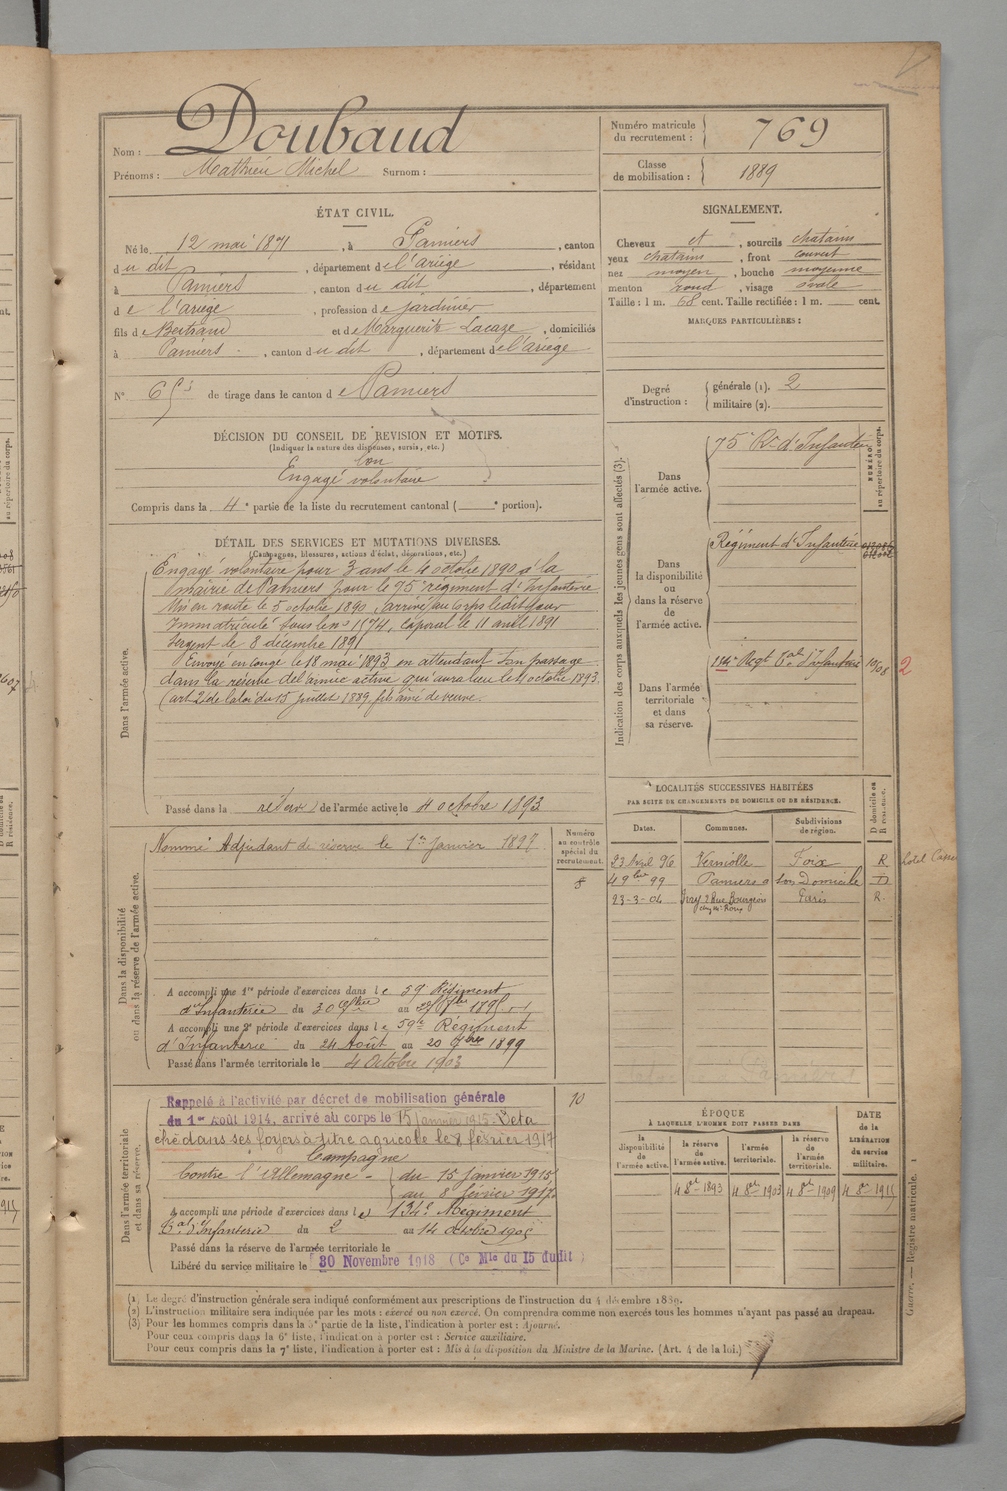 Nom : Doubaud
Prénoms : Mathieu Michel Surnom :
Numéro matricule du recrutement : 769
Classe de mobilisation : 1889
ÉTAT CIVIL.
Né le 12 mai 1871, à Pamiers, canton
du dit, département de l'ariège, résidant
à Pamiers, canton du dit, département
de l'ariège, profession de jardinier
fils de Bertrand et de Marguerite Lacaze, domiciliés
à Pamiers, canton du dit, département de l'ariège
N° 65 de tirage dans le canton de Pamiers
SIGNALEMENT.
Cheveux et, sourcils chatains
yeux chatains, front couvert
nez moyen, bouche moyenne
menton rond, visage ovale
Taille : 1 m. 68 cent. Taille rectifiée : 1 m. cent.
MARQUES PARTICULIÈRES :
Degré d'instruction : générale (1). 2
militaire (2).
DÉCISION DU CONSEIL DE REVISION ET MOTIFS.
(Indiquer la nature des dispenses, sursis, etc.)
bon
Engagé volontaire
Compris dans la 4e partie de la liste du recrutement cantonal ( portion).
DÉTAIL DES SERVICES ET MUTATIONS DIVERSES.
(Campagnes, blessures, actions d'éclat, décorations, etc.)
Dans l'armée active.
Engagé volontaire pour 3 ans le 4 octobre 1890 à la
mairie de Pamiers pour le 75e régiment d'Infanterie
Mis en route le 5 octobre 1890, arrivé au corps le dit jour
Immatriculé sous le no 1574, caporal le 11 avril 1891
Sergent le 8 décembre 1891
Envoyé en congé le 18 mai 1893 en attendant son passage
dans la réserve de l'armée active qui aura lieu le 4 octobre 1893.
(art 2 de la loi du 15 juillet 1889 fils aîné de veuve.
Passé dans la réserve de l'armée active le 4 octobre 1893
Indication des corps auxquels les jeunes gens sont affectés (3).
NUMÉRO au répertoire du corps.
Dans l'armée active.
75e Rt d'Infanterie
Dans la disponibilité ou dans la réserve de l'armée active.
Régiment d'Infanterie
Dans l'armée territoriale et dans sa réserve.
134e Regt tal d'Infanterie 10/08 2
LOCALITÉS SUCCESSIVES HABITÉES
PAR SUITE DE CHANGEMENTS DE DOMICILE OU DE RÉSIDENCE.
Dates. Communes. Subdivisions de région. D domicile ou R résidence.
23 Avril 96 Verniolle Foix R
4 9bre 99 Pamiers a son Domicile D
23-3-04 Ivry 2 Rue Bourgeois Paris R.
chez Mr Roux
Dans la disponibilité ou dans la réserve de l'armée active.
Numéro au contrôle spécial du recrutement.
Nommé Adjudant de réserve le 1er Janvier 1897.
8
A accompli une 1re période d'exercices dans le 59 Régiment
d'Infanterie du 30 au 1895
A accompli une 2e période d'exercices dans le 59e Régiment
d'Infanterie du 24 Août au 20 7bre 1899
Passé dans l'armée territoriale le 4 Octobre 1903
Dans l'armée territoriale et dans sa réserve.
Rappelé à l'activité par décret de mobilisation générale
du 1er août 1914, arrivé au corps le 15 Janvier 1915. Déta
ché dans ses foyers à titre agricole le 8 février 1917
Campagne
Contre l'Allemagne - du 15 Janvier 1915
au 8 février 1917.
10
A accompli une période d'exercices dans le 134e Régiment
tal d'Infanterie du 2 au 14 octobre 1905
Passé dans la réserve de l'armée territoriale le
Libéré du service militaire le 30 Novembre 1918 (Ce Mle du 15 dudit)
ÉPOQUE
À LAQUELLE L'HOMME DOIT PASSER DANS
la disponibilité de l'armée active. la réserve de l'armée active. l'armée territoriale. la réserve de l'armée territoriale. DATE de la LIBÉRATION du service militaire.
4 8bre 1893 4 8bre 1903 4 8bre 1909 4 8bre 1915
Guerre. — Registre matricule. 1
(1) Le degré d'instruction générale sera indiqué conformément aux prescriptions de l'instruction du 4 décembre 1889.
(2) L'instruction militaire sera indiquée par les mots : exercé ou non exercé. On comprendra comme non exercés tous les hommes n'ayant pas passé au drapeau.
(3) Pour les hommes compris dans la 5e partie de la liste, l'indication à porter est : Ajourné.
Pour ceux compris dans la 6e liste, l'indication à porter est : Service auxiliaire.
Pour ceux compris dans la 7e liste, l'indication à porter est : Mis à la disposition du Ministre de la Marine. (Art. 4 de la loi.)